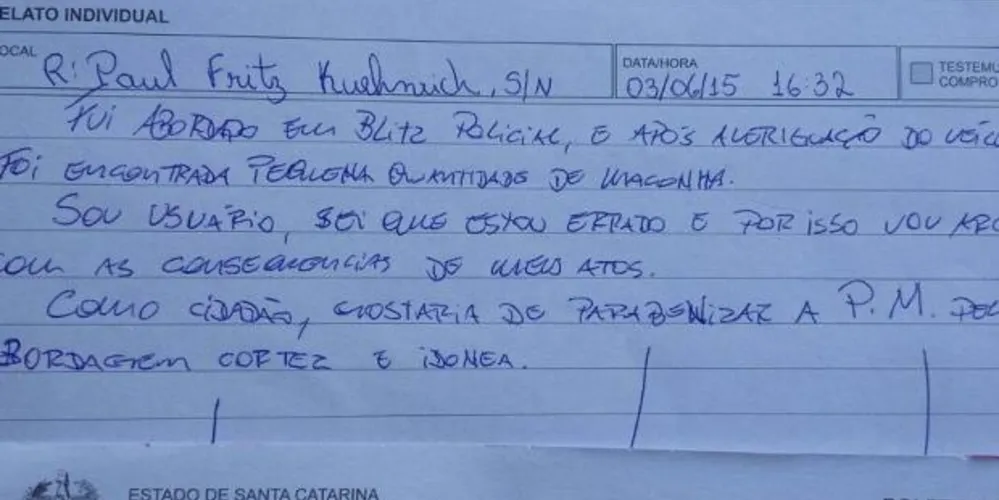 ELATO INDIVIDUAL
OCAL
R: Paul Fritz Kuehnrich, S/N
DATA/HORA
03/06/15 16:32
TESTEMU
COMPRO
FUI ABORDADO EM BLITZ POLICIAL, E APÓS AVERIGUAÇÃO DO VEÍC
FOI ENCONTRADA PEQUENA QUANTIDADE DE MACONHA.
SOU USUÁRIO, SEI QUE ESTOU ERRADO E POR ISSO VOU ARC
COM AS CONSEQUENCIAS DE MEUS ATOS.
COMO CIDADÃO, GOSTARIA DE PARABENIZAR A P.M. PEL
BORDAGEM CORTEZ E IDONEA.
ESTADO DE SANTA CATARINA